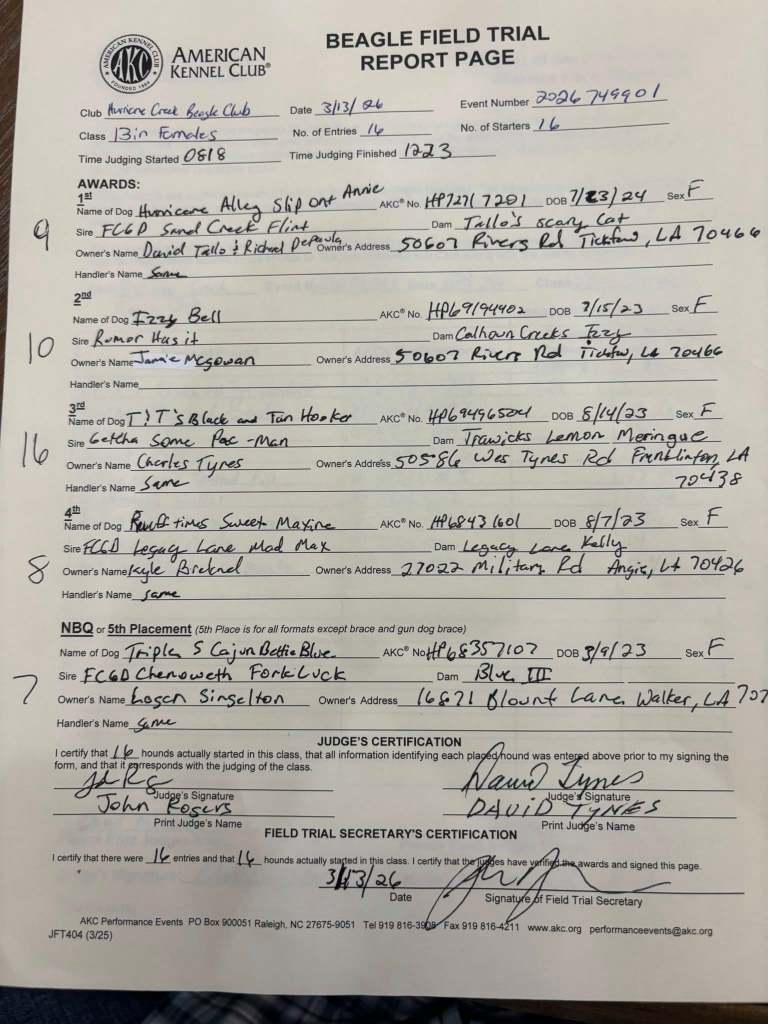 AMERICAN KENNEL CLUB
AKC
FOUNDED 1884
AMERICAN
KENNEL CLUB®
BEAGLE FIELD TRIAL
REPORT PAGE
Club Hurricne Creek Beagle Club Date 3/13/26 Event Number 2026749901
Class 13in Females No. of Entries 16 No. of Starters 16
Time Judging Started 0818 Time Judging Finished 1223
AWARDS:
1st
Name of Dog Hurricane Alley Slip Ont Annie AKC® No. HP727 7201 DOB 7/23/24 Sex F
9
Sire FCGD Sand Creek Flint Dam Tallo's scary Cat
Owner's Name David Tallo & Richard DePaula Owner's Address 50607 Rivers Rd Tickfaw, LA 70466
Handler's Name Same
2nd
Name of Dog Izzy Bell AKC® No. HP69194402 DOB 7/15/23 Sex F
10
Sire Rumor Has it Dam Calhoun Creeks Izzy
Owner's Name Jamie McGowan Owner's Address 50607 Rivers Rd Tickfaw, LA 70466
Handler's Name
3rd
Name of Dog T&T's Black and Tan Hooker AKC® No. HP69496504 DOB 8/14/23 Sex F
16
Sire Getcha Some Pac-Man Dam Trawicks Lemon Meringue
Owner's Name Charles Tynes Owner's Address 50586 Wes Tynes Rd Franklinton, LA
70438
Handler's Name Same
4th
Name of Dog Ruff times Sweet Maxine AKC® No. HP68431601 DOB 8/7/23 Sex F
8
Sire FCGD Legacy Lane Mad Max Dam Legacy Lane Kelly
Owner's Name Kyle Owner's Address 27022 Military Rd Angie, LA 70426
Handler's Name same
NBQ or 5th Placement (5th Place is for all formats except brace and gun dog brace)
Name of Dog Triple S Cajun Bettie Blue AKC® No HP68357107 DOB 3/9/23 Sex F
7
Sire FCGD Chenoweth Fork Luck Dam Blue III
Owner's Name Logan Singelton Owner's Address 16871 Blount Lane, Walker, LA 707
Handler's Name Same
JUDGE'S CERTIFICATION
I certify that 16 hounds actually started in this class, that all information identifying each placed hound was entered above prior to my signing the
form, and that it corresponds with the judging of the class.
David Tynes
Judge's Signature Judge's Signature
John Rogers DAVID TYNES
Print Judge's Name Print Judge's Name
FIELD TRIAL SECRETARY'S CERTIFICATION
I certify that there were 16 entries and that 16 hounds actually started in this class. I certify that the judges have verified the awards and signed this page.
3/13/26
Date Signature of Field Trial Secretary
AKC Performance Events PO Box 900051 Raleigh, NC 27675-9051 Tel 919 816-3908 Fax 919 816-4211 www.akc.org performanceevents@akc.org
JFT404 (3/25)